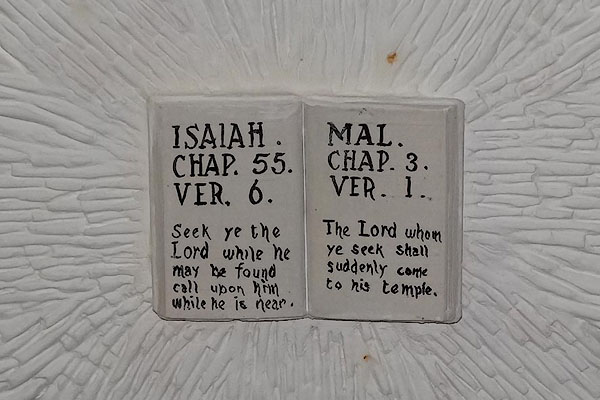 ISAIAH.
CHAP. 55.
VER. 6.
Seek ye the
Lord while he
may be found
call upon him
while he is near.
MAL.
CHAP. 3.
VER. 1.
The Lord whom
ye seek shall
suddenly come
to his temple.